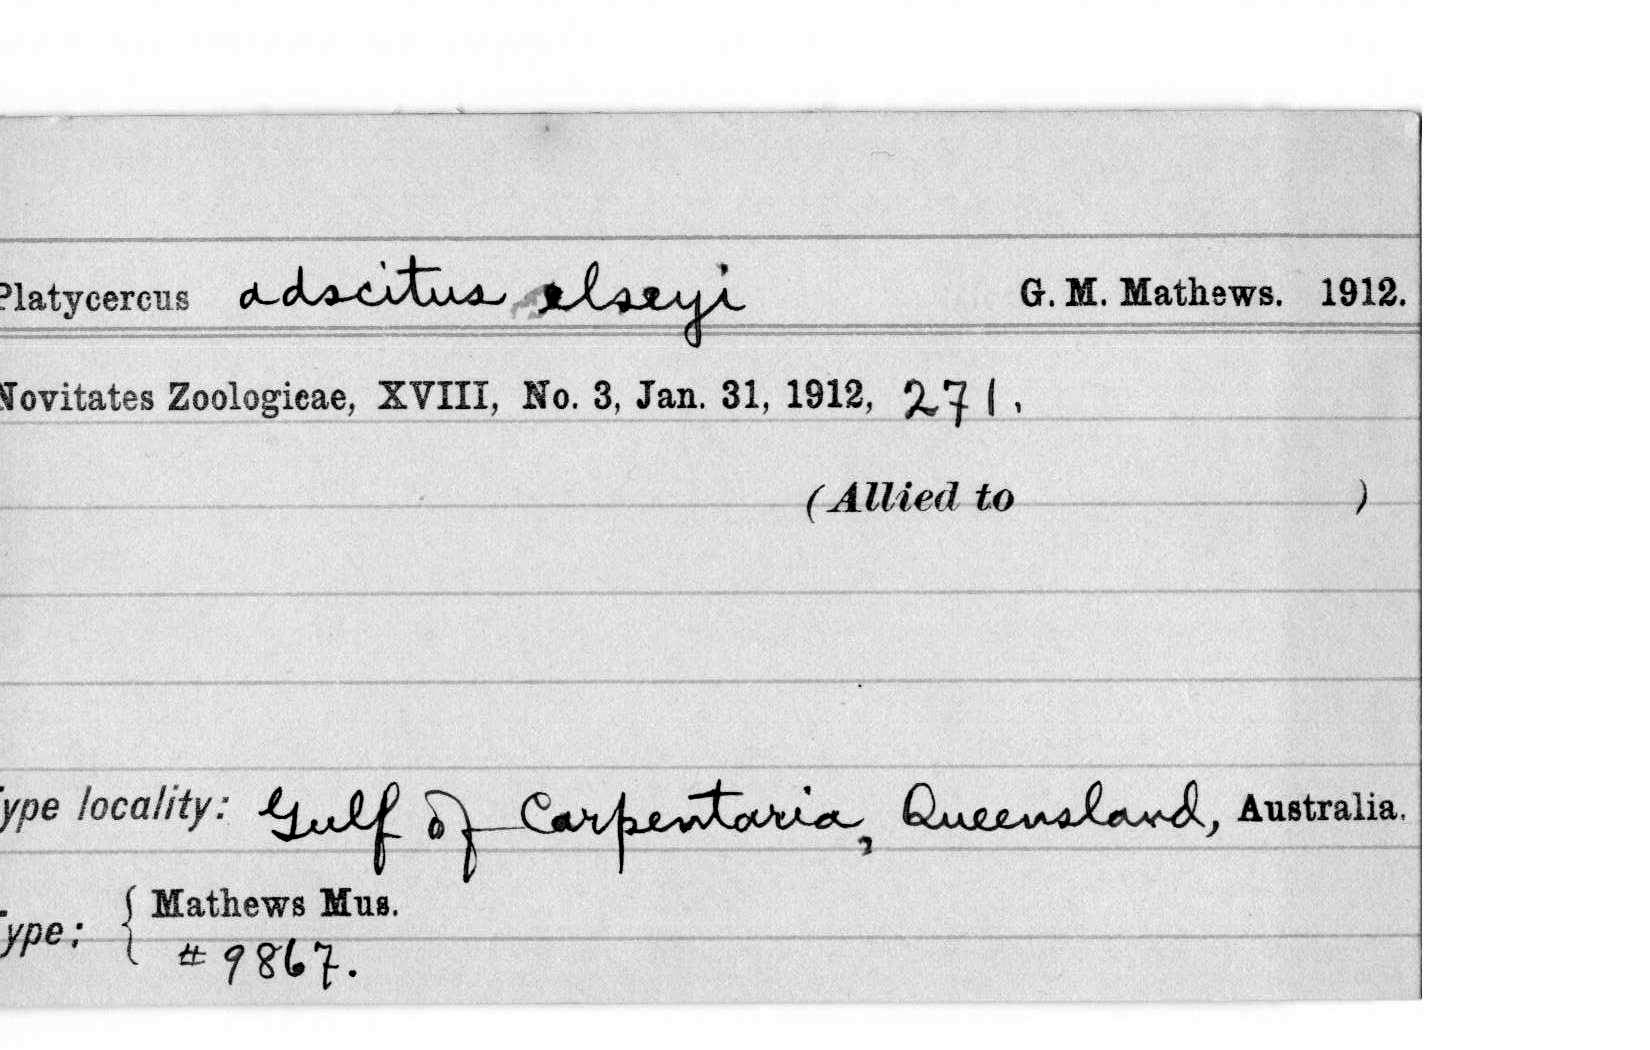 Platycercus adscitus elseyi G. M. Mathews. 1912.
Novitates Zoologicae, XVIII, No. 3, Jan. 31, 1912, 271.
(Allied to )
Type locality: Gulf of Carpentaria, Queensland, Australia.
Mathews Mus.
Type:
# 9867.